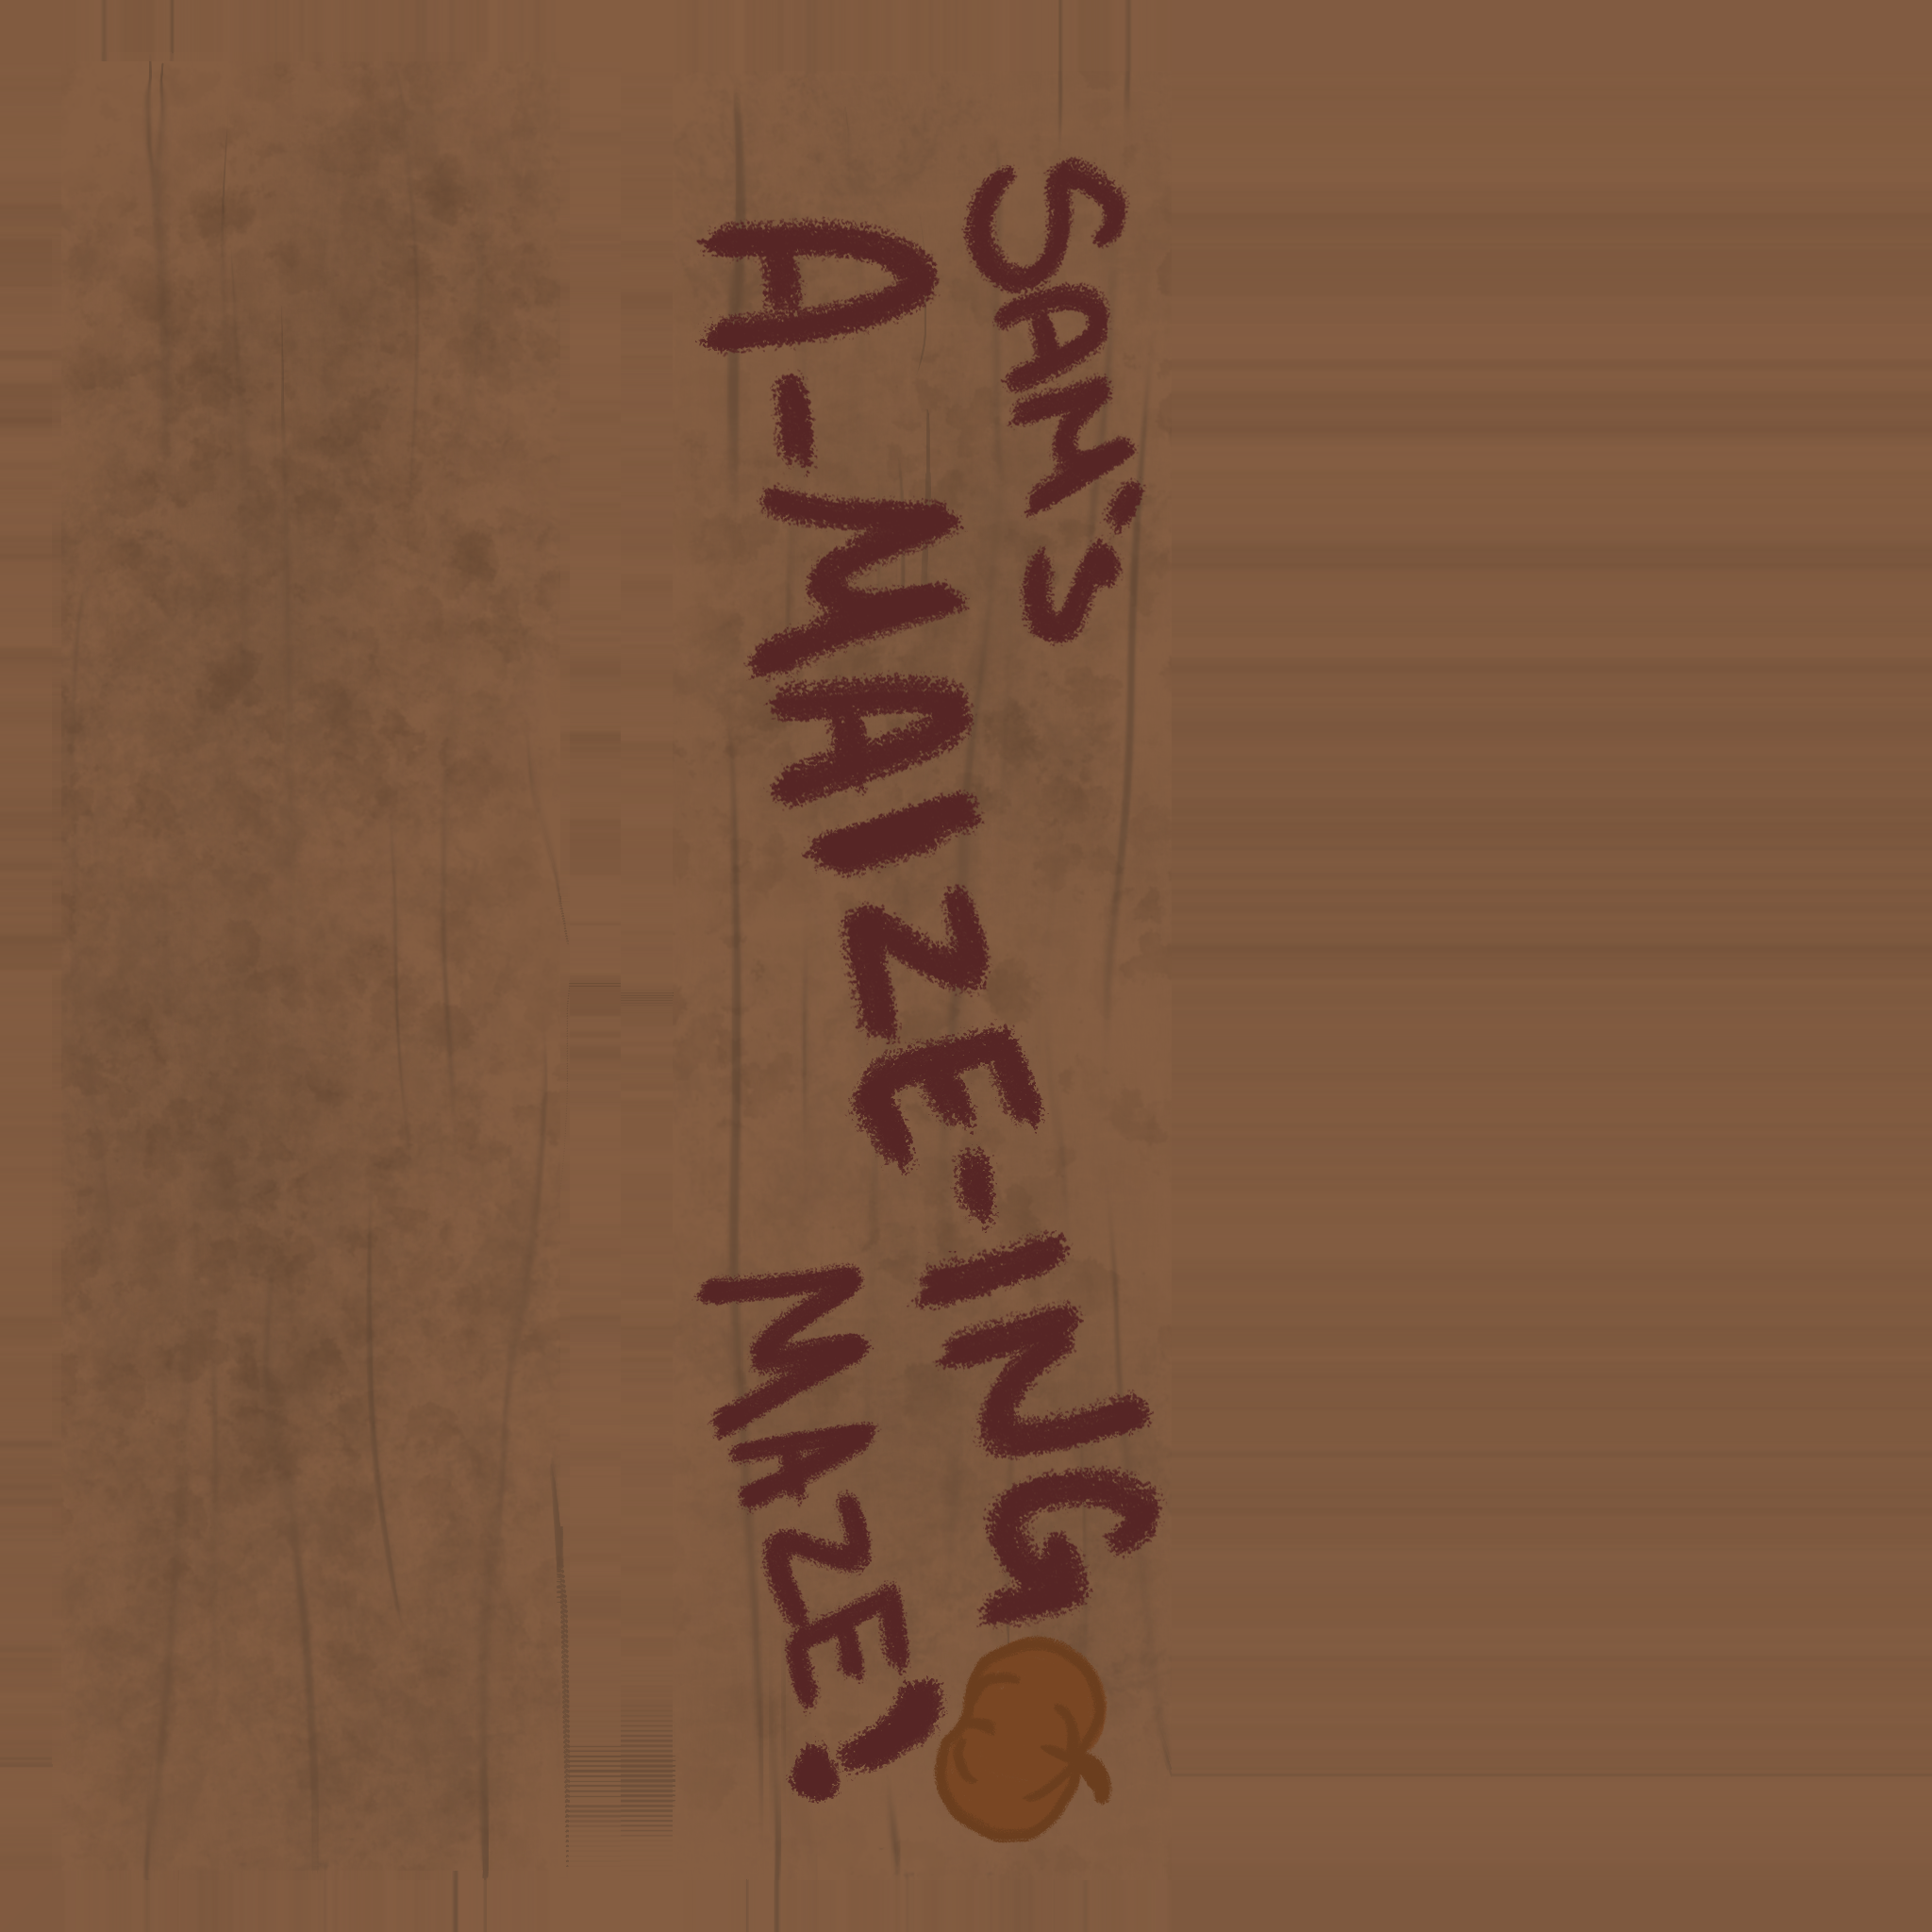 SAM'S
A-MAIZE-ING
MAZE!